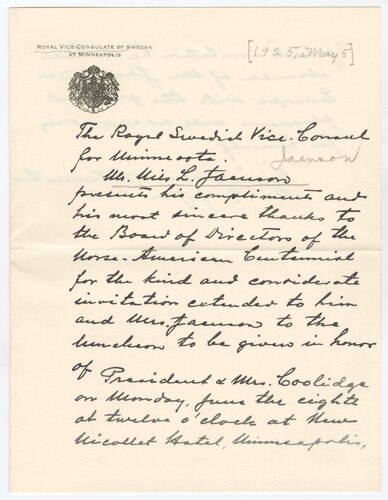 ROYAL VICE-CONSULATE OF SWEDEN
AT MINNEAPOLIS
[1925, May 5]
The Royal Swedish Vice-Consul
for Minnesota.
Jaenson
Mr. Nils L. Jaenson
presents his compliments and
his most sincere thanks to
the Board of Directors of the
Norse-American Centennial
for the kind and considerate
invitation extended to him
and Mrs. Jaenson to the
luncheon to be given in honor
of
President & Mrs. Coolidge
on Monday, June the eighth
at twelve o'clock at New
Nicollet Hotel, Minneapolis,